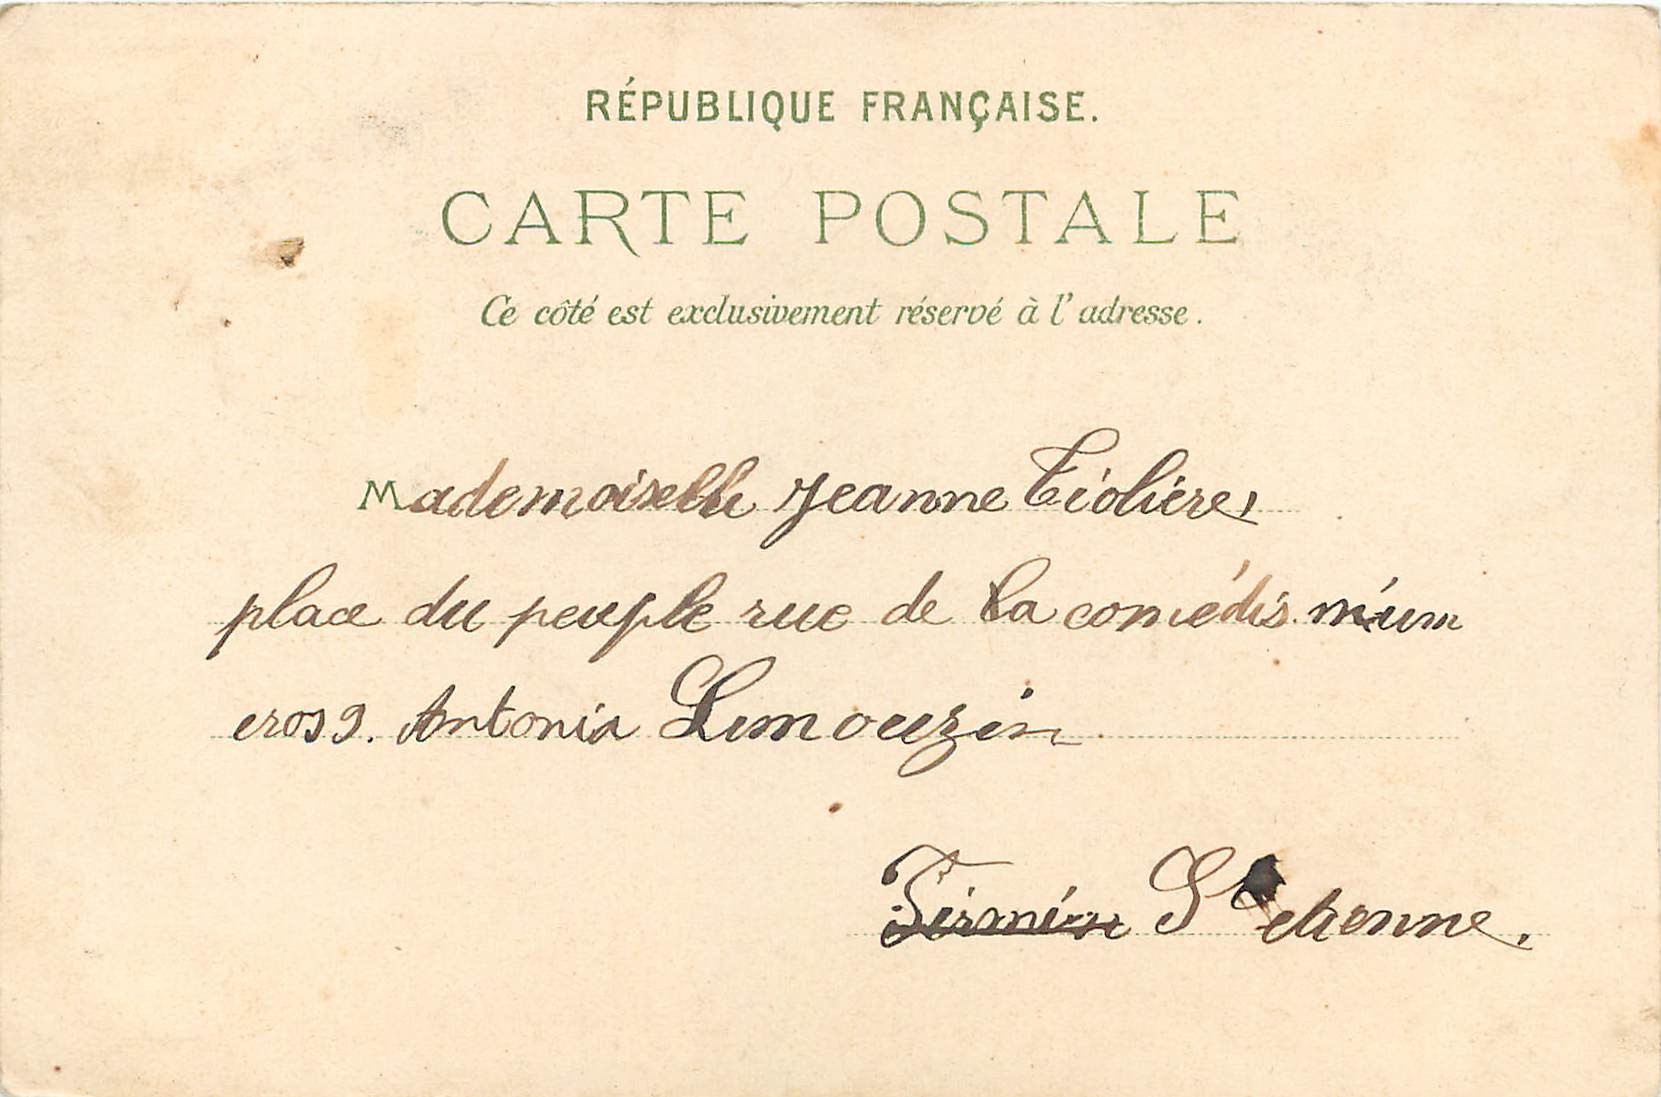 RÉPUBLIQUE FRANÇAISE.
CARTE POSTALE
Ce côté est exclusivement réservé à l'adresse.
Mademoiselle Jeanne Tiolière
place du peuple rue de la comédis num
eros 9. Antonia Limouzin
Firminie St etienne.